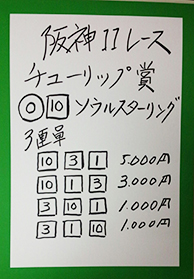 阪神11レース
チューリップ賞
◎10ソウルスターリング
3連単
10 3 1 5.000円
10 1 3 3.000円
3 10 1 1.000円
3 1 10 1.000円